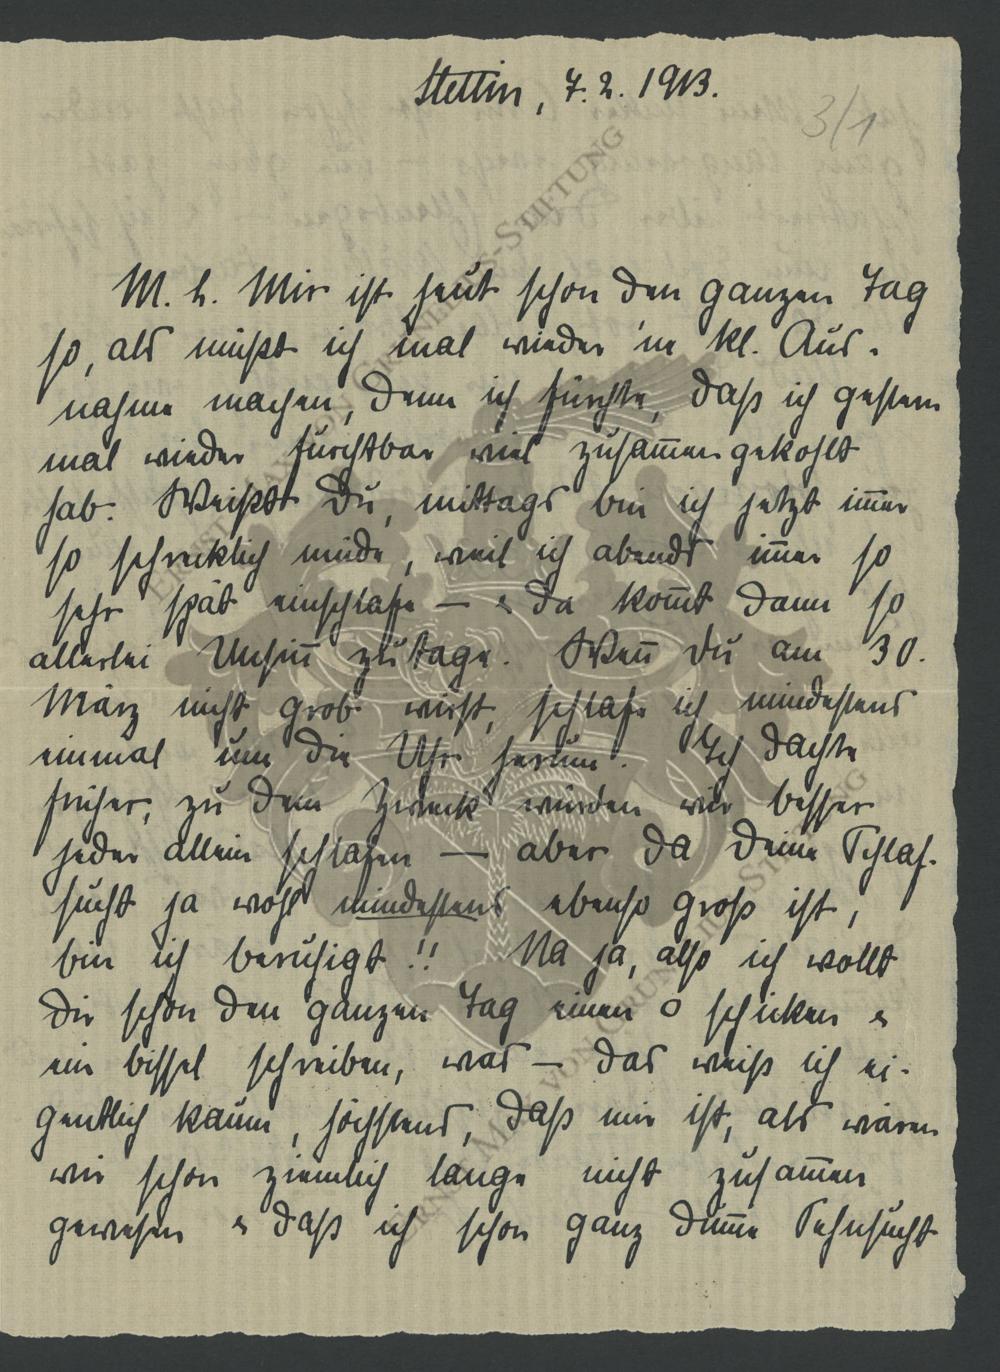 Stettin, 7.2.1913.
3/1
M. h. Mir ist heut schon den ganzen Tag
so, als müßt ich mal wieder 'ne kl. Aus-
nahme machen, denn ich fürchte, daß ich gestern
mal wieder furchtbar viel zusam̄engekohlt
hab. Weißt Du, mittags bin ich jetzt im̄er
so schrecklich müde, weil ich abends im̄er so
sehr spät einschlafe — & da kom̄t dann so
allerlei Unsin̄ zutage. Wen̄ Du am 30.
März nicht grob wirst, schlafe ich mindestens
einmal um die Uhr herum. Ich dachte
früher, zu dem Zweck würden wir besser
jeder allein schlafen — aber da Deine Schlaf-
sucht ja wohl mindestens ebenso groß ist,
bin ich beruhigt!! Na ja, also ich wollt
Dir schon den ganzen Tag einen o schicken &
ein bissel schreiben, was — das weiß ich ei-
gentlich kaum, höchstens, daß mir ist, als wären
wir schon ziemlich lange nicht zusam̄en
gewesen & daß ich schon ganz dum̄e Sehnsucht